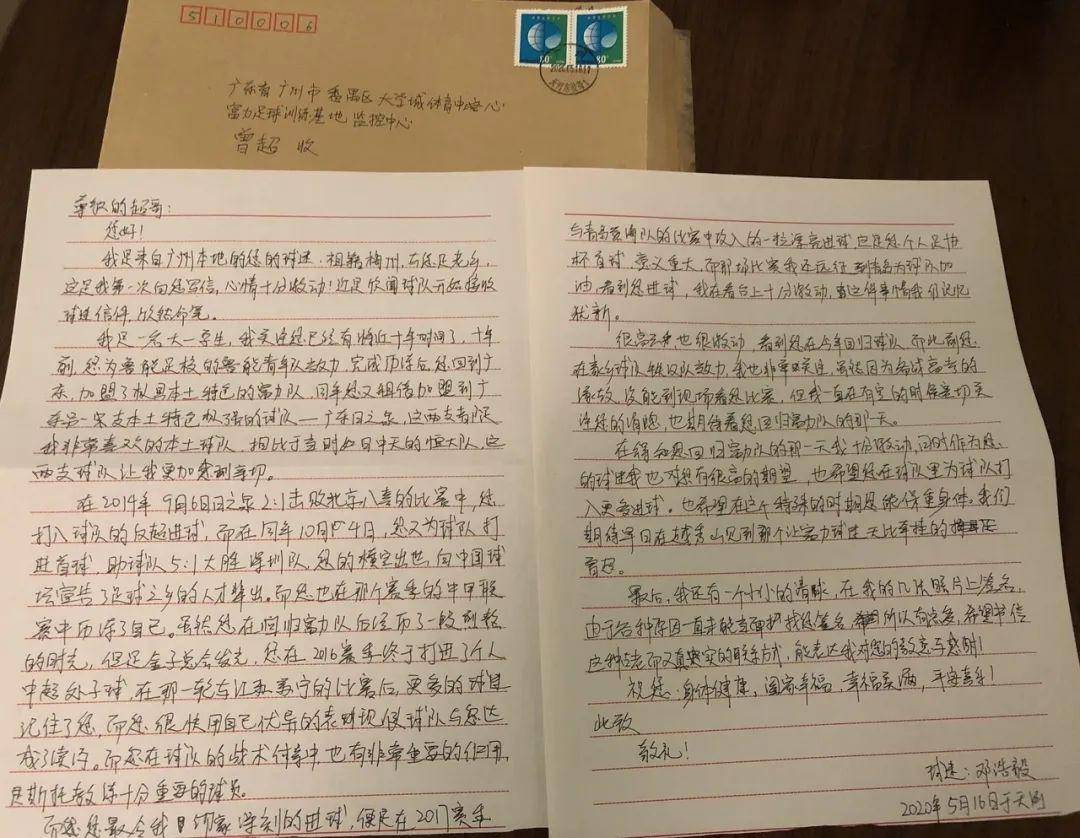 510006
80
80
广东省广州市番禺区大学城体育中心
富力足球训练基地 监控中心
曾超 收
尊敬的超哥：
您好！
我是来自广州本地的您的球迷，祖籍梅州，与您是老乡，
这是我第一次向您写信，心情十分激动！近是欣闻球队开始接收
球迷信件，欣然命笔。
我是一名大一学生，我关注您已经有将近十年时间了，十年
前，您为鲁能足校的鲁能青年队效力，完成历练后，您回到广
东，加盟了极具本土特色的富力队，同年您又租借加盟到广
东另一家支本土特色极强的球队——广东日之泉，这两支球队
我非常喜欢的本土球队，相比于当时如日中天的恒大队，这
两支球队让我更加感到亲切。
在2014年9月6日日之泉2:1击败北京八喜的比赛中，您
打入球队的反超进球，而在同年10月4日，您又为球队打
进首球，助球队5:1大胜深圳队，您的横空出世，向中国球
坛宣告了足球之乡的人才辈出。而您也在那个赛季的中甲联
赛中历练了自己。虽然您在回归富力队后经历了一段
的时光，但是金子总会发光，您在2016赛季终于打进了个人
中超处子球，在那一轮与江苏苏宁的比赛后，更多的球迷
记住了您，而您很快用自己优异的表现使球队与您达
成了续约。而您在球队的战术体系中也有非常重要的作用，
是斯托教练十分重要的球员。
而您最令我印象深刻的进球，便是在2017赛季
与青岛黄海队的比赛中攻入的一粒漂亮进球也是您个人足协
杯首球，意义重大，而那场比赛我还远征到青岛为球队加
油，看到您进球，我在看台上十分激动，这件事情我仍记忆
犹新。
很高兴也很激动，看到您在今年回归球队，而此前您
在家乡球队梅州队效力，我也非常关注，虽然因为备战高考的
缘故，没能到现场看您比赛，但我一直在有空的时候密切关
注您的消息，也期待着您回归富力队的那一天。
在得知您回归富力队的那一天我十分激动，同时作为您
的球迷我也对您有很高的期望，也希望您在球队里为球队打
入更多进球。也希望在这个特殊的时期您能保重身体。我们
期待早日在越秀山见到那个让富力球迷无比牵挂的
曾超。
最后，我还有一个小小的请求，在我的几张照片上签名，
由于各种原因一直未能当面找您签名，所以有完爱，希望书信
这种古老而又真实的联系方式，能表达我对您的敬意与感谢！
祝您：身体健康，阖家幸福，幸福美满，平安喜乐！
此致
敬礼！
球迷：邓浩毅
2020年5月16日于天河